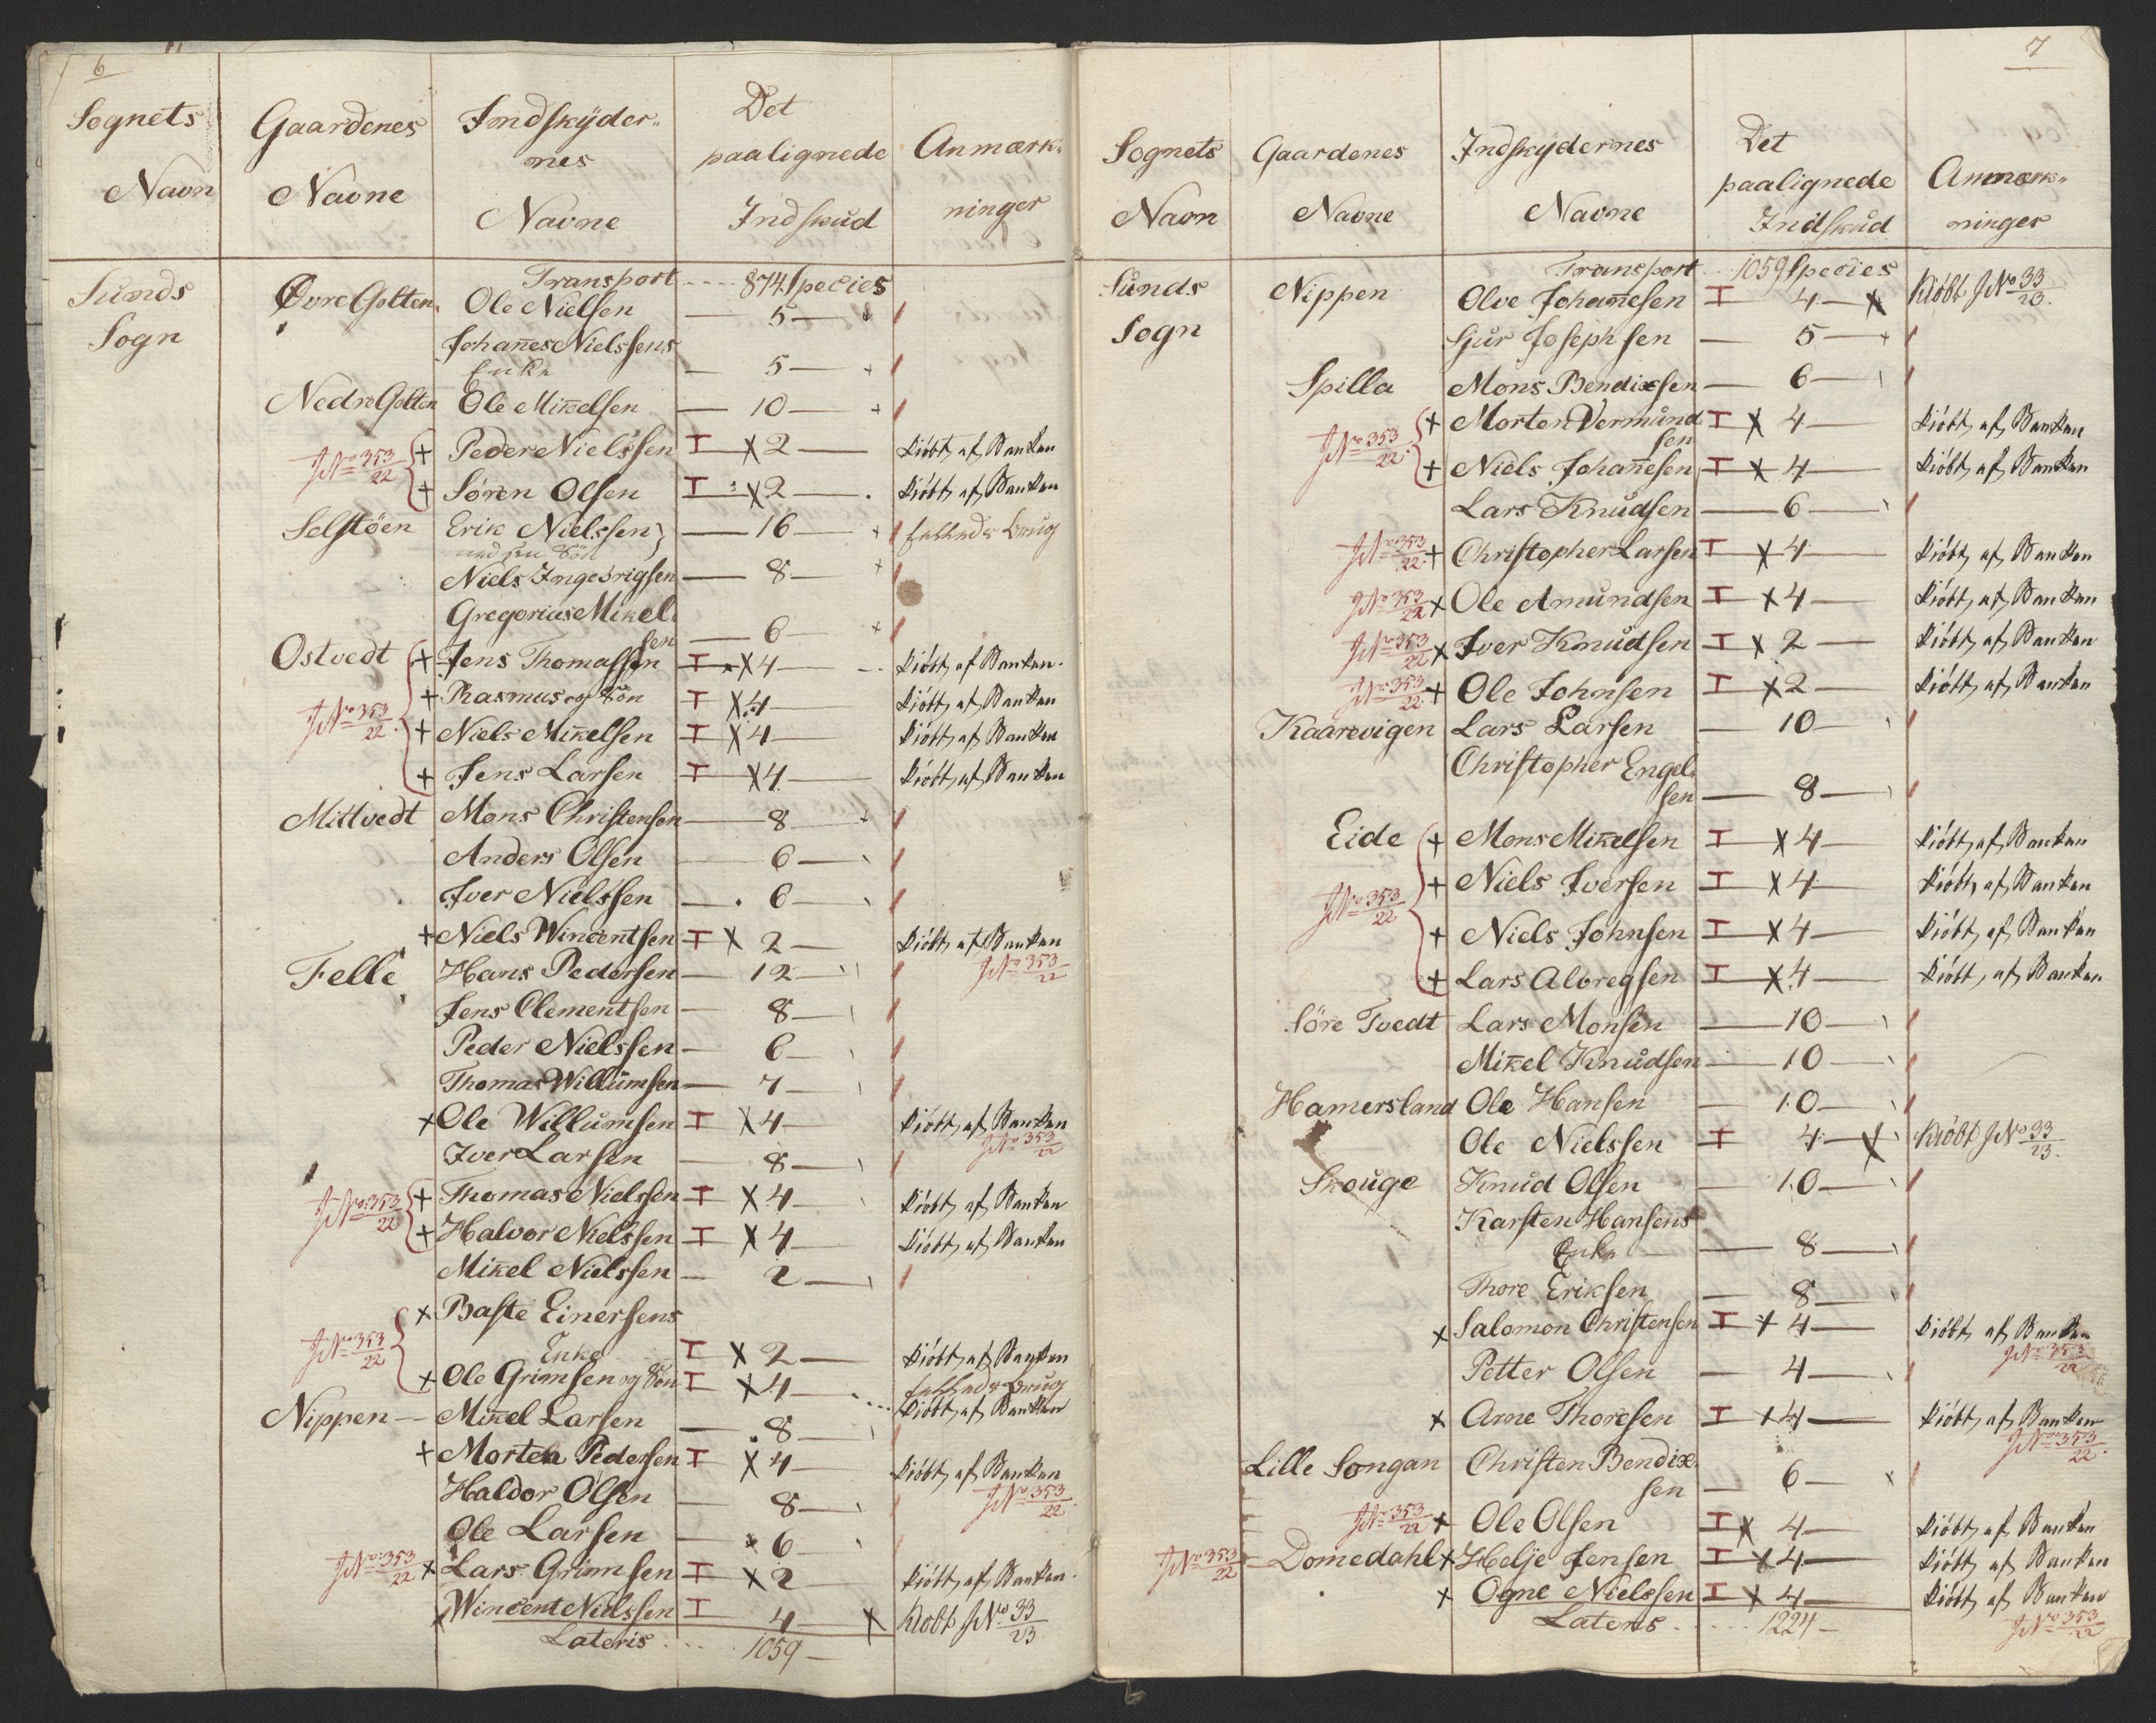 6
Sognets Navn
Gaardenes Navne
Indskÿder„ nes Navne
Det paalignede Indskud
Anmærk„ ninger
Sunds Sogn
Transport ---- 874 Species
Øvre Golten Ole Nielsen — 5 —
Johan̄es Nielssens Enke — 5 —
Nedre Golten Ole Mik̄elsen — 10 —
JNo 353/22 + Peder Nielssen I X 2 — kiöbt af Banken
+ Sören Olsen I X 2 — kiöbt af Banken
Selstöen Erik Nielssen — 16 — Brug
med sin Sön
Niels Ingebrigsen — 8 —
Gregorius Mikel„
sen — 6 —
Ostvedt + Jens Thomassen I X 4 — kiöbt af Banken
+ Rasmus og Sön I X 4 — kiöbt af Banken
JNo 353/22 + Niels Mik̄elsen I X 4 — kiöbt af Banken
+ Jens Larsen I X 4 — kiöbt af Banken
Mittvedt Mons Christensen — 8 —
Anders Olsen — 6 —
Iver Nielssen — 6 —
+ Niels Wincentsen I X 2 — kiöbt af Banken
JNo 353/22
Felle Hans Pedersen — 12 —
Jens Clementsen — 8 —
Peder Nielssen — 6 —
Thomas Willumsen — 7 —
x Ole Willumsen I X 4 — kiöbt af Banken
JNo 353/22
Iver Larsen — 8 —
JNo 353/22 + Thomas Nielssen I X 4 — kiöbt af Banken
+ Halvor Nielssen I X 4 — kiöbt af Banken
Mik̄el Nielssen — 2 —
x Baste Einersens
JNo 353/22 Enke I X 2 — kiöbt af Banken
x Ole Grimsen og Sön I X 4 — Brug
kiöbt af Banken
Nippen — Mik̄el Larsen — 8 —
+ Morten Pedersen I X 4 — kiöbt af Banken
JNo 353/22
Haldor Olsen — 8 —
Ole Larsen — 6 —
JNo 353/22 x Lars Grimsen I X 2 — kiöbt af Banken
x Wincent Nielssen I 4 — X Kiöbt JNo 33/23
Lateris .... 1059 —
7
Sognets Navn
Gaardenes Navne
Indskÿdernes Navne
Det paalignede Indskud
Anmærk„ ninger
Sunds Sogn
Transport .. 1059 Species
Nippen Olve Johan̄esen I 4 — X Kiöbt JNo 33/23.
Sjur Josephsen — 5 —
Spilla Mons Bendixsen — 6 —
JNo 353/22 + Morten Vermund
sen I X 4 — kiöbt af Banken
+ Niels Johan̄esen I X 4 — kiöbt af Banken
Lars Knudsen — 6 —
JNo 353/22 + Christopher Larsen I X 4 — kiöbt af Banken
JNo 353/22 x Ole Amundsen I X 4 — kiöbt af Banken
JNo 353/22 x Iver Knudtsen I X 2 — kiöbt af Banken
JNo 353/22 + Ole Johnsen I X 2 — kiöbt af Banken
Kaarevigen Lars Larsen — 10 —
Christopher Engel„
sen — 8 —
Eide + Mons Mik̄elsen I X 4 — kiöbt af Banken
JNo 353/22 + Niels Iversen I X 4 — kiöbt af Banken
+ Niels Johnsen I X 4 — kiöbt af Banken
+ Lars Albregsen I X 4 — kiöbt af Banken
Söre Tvedt Lars Monsen — 10 —
Mik̄el Knudsen — 10 —
Hamersland Ole Hansen — 10 —
Ole Nielssen I 4 — X Kiöbt JNo 33/23.
Skouge Knud Olsen — 10 —
Karsten Hansens
Enke — 8 —
Thore Eriksen — 8 —
x Salomon Christensen I X 4 — kiöbt af Banken
JNo 353/22
Petter Olsen — 4 —
x Arne Thoresen I X 4 — kiöbt af Banken
JNo 353/22
Lille Songan Christen Bendix„
sen — 6 — x
JNo 353/22 + Ole Olsen I X 4 — kiöbt af Banken
JNo 353/22 Domedahl x Helje Jensen I X 4 — kiöbt af Banken
x Ogne Nielssen I X 4 — kiöbt af Banken
JNo 353/22
Lateris ..... 1224 —